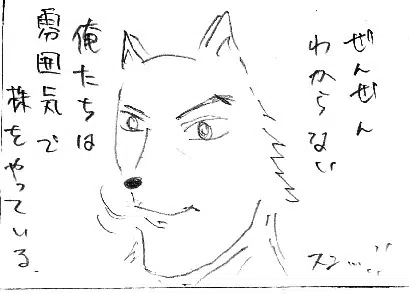 ぜんぜん
わからない
俺たちは
雰囲気で
株をやっている。
スン…!!